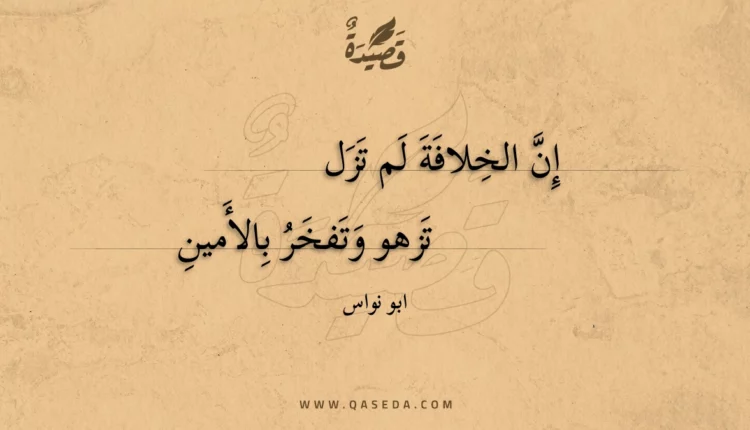 قَصِيدَةٌ
إِنَّ الخِلافَةَ لَم تَزَل
تَزهو وَتَفخَرُ بِالأَمينِ
ابو نواس
WWW.QASEDA.COM